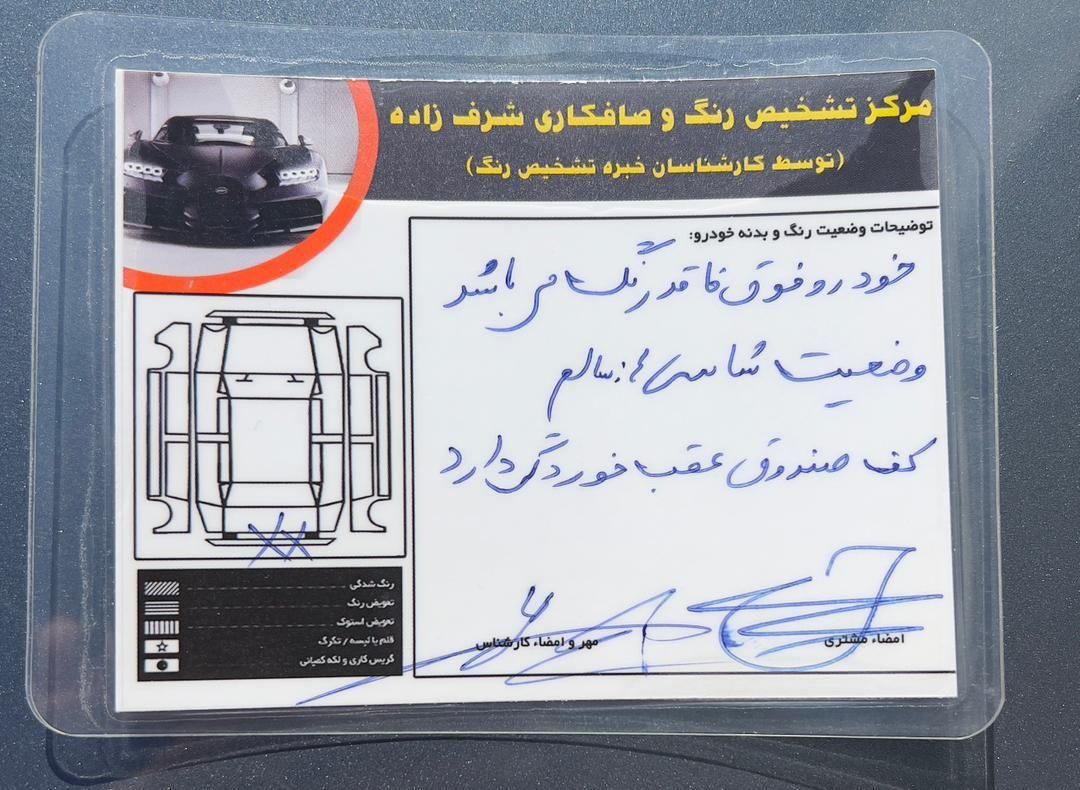 مرکز تشخیص رنگ و صافکاری شرف زاده
(توسط کارشناسان خبره تشخیص رنگ)
توضیحات وضعیت رنگ و بدنه خودرو:
خودرو فوق فاقد رنگ می باشد
وضعیت شاسی ها: سالم
کف صندوق عقب خوردگی دارد
رنگ شدگی
تعویض رنگ
تعویض استوک
قلم یا لیسه / تگرگ
گریس کاری و لکه کمپانی
امضاء مشتری
مهر و امضاء کارشناس